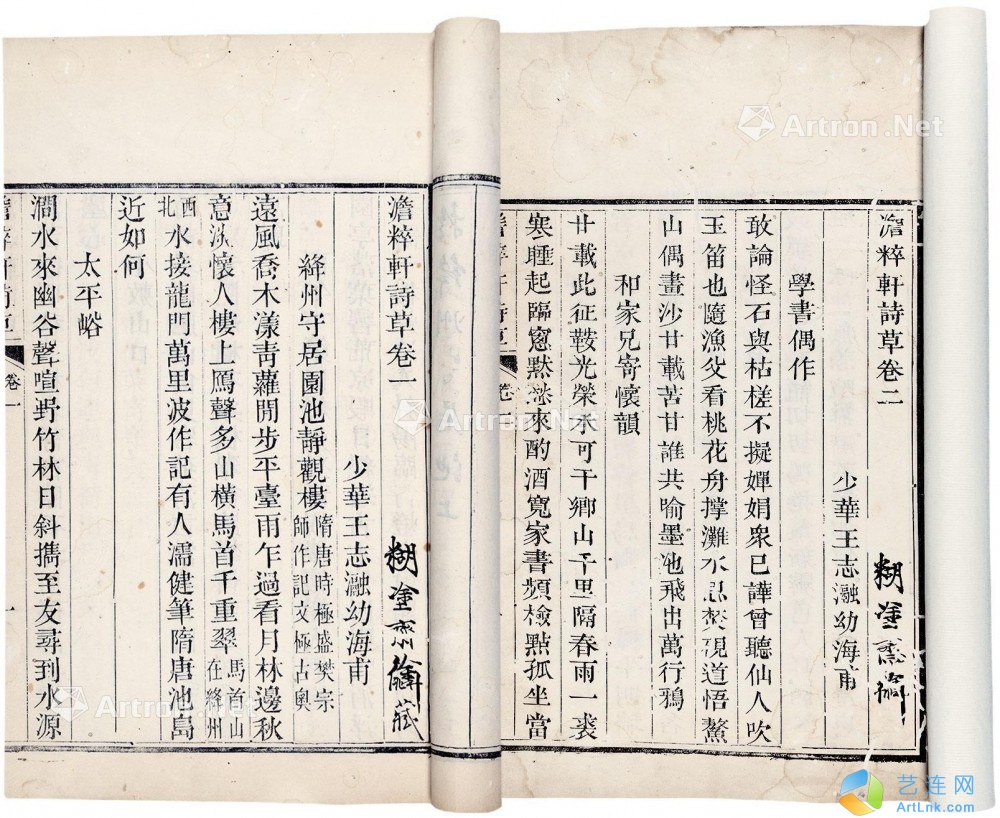 澹粹軒詩草卷二
糊塗齋
少華王志瀜幼海甫
學書偶作
敢論怪石與枯槎不擬嬋娟衆已譁曾聽仙人吹
玉笛也隨漁父看桃花舟撐灘水現道悟鰲
山偶畫沙廿載苦甘誰共喻墨池飛出萬行鴉
和家兄寄懷韻
廿載此征鞍光榮未可干鄉山千里隔春雨一裘
寒睡起臨窻默愁來酌酒寬家書頻檢點孤坐當
澹粹軒詩草
卷
澹粹軒詩草卷一
糊塗齋藏
少華王志瀜幼海甫
絳州守居園池靜觀樓隋唐時極盛樊宗
師作記文極古奧
遠風喬木漾青蘿閒步平臺雨乍過看月林邊秋
意淡懷人樓上鴈聲多山橫馬首千重翠馬首山
在絳州
西北水接龍門萬里波作記有人濡健筆隋唐池島
近如何
太平峪
澗水來幽谷聲喧野竹林日斜攜至友尋到水源
澹粹軒詩草
卷一
一
Artron.Net
Artron.Net
Artron.Net
艺连网
ArtLnk.com